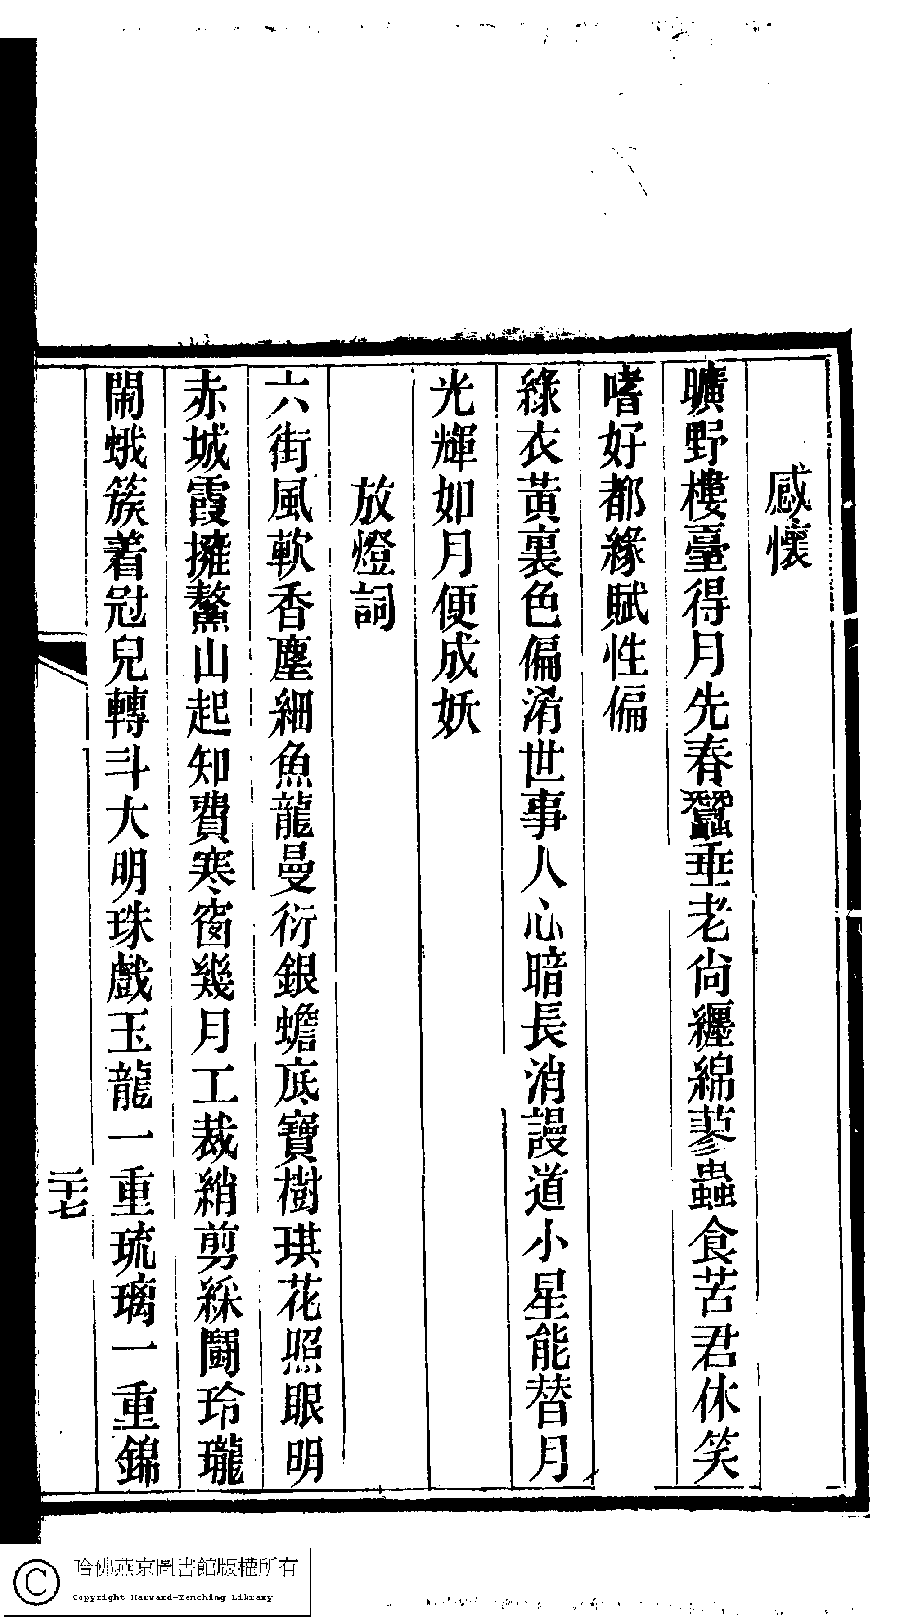 感懷
曠野樓臺得月先春蠶垂老尙纒綿蓼蟲食苦君休笑
嗜好都緣賦性偏
綠衣黃裏色偏淆世事人心暗長消謾道小星能替月
光輝如月便成妖
放燈詞
六街風軟香塵細魚龍曼衍銀蟾底寶樹琪花照眼明
赤城霞擁鰲山起知費寒窗幾月工裁綃剪綵鬭玲瓏
鬧蛾簇着冠兒轉斗大明珠戲玉龍一重琉璃一重錦
二十七
哈佛燕京圖書館版權所有
Copyright Harvard-Yenching Library